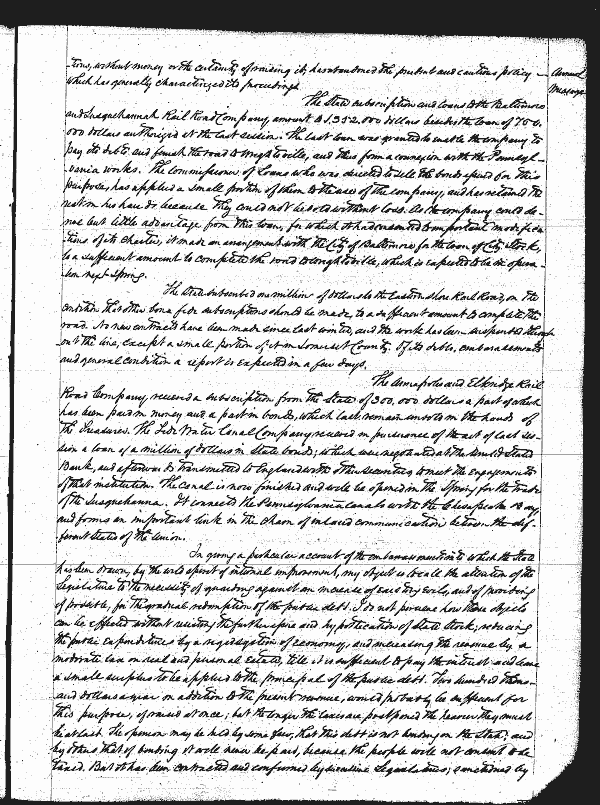 tions, without money or the certainty of raising it, has abandoned the prudent and cautious policy
which has generally characterized its proceedings.
Annual
Message
The State subscription and loans to the Baltimore
and Susquehannah Rail Road Company, amount to 1,352.000 dollars besides the loan of 750.
000 dollars authorized at the last session. The last loan was granted to enable the company to
pay its debts and finish the road to Wrightsville, and thus form a connexion with the Pennsyl-
vania works. The Commissioner of Loans who was directed to sell the bonds issued for this
purpose, has applied a small portion of them to the use of the company, and has retained the
rest on his hands because they could not be sold without loss. As the company could de-
rive but little advantage from this loan, for which it had consented to important modifica-
tions of its charter, it made an arrangement with the City of Baltimore for the loan of City Stock,
to a sufficient amount to complete the road to Wrightsville, which is expected to be in opera-
tion next Spring.
The State subscribed one million of dollars to the Eastern Shore Rail Road, on the
condition that other bona fide subscriptions should be made, to a sufficient amount to complete the
road. No new contracts have been made since last winter, and the work has been suspended through-
out the line, except a small portion of it in Somerset County. Of its debts, embarrassments
and general condition a report is expected in a few days.
The Annapolis and Elkridge Rail
Road Company, received a subscription from the State of 300,000 dollars a part of which
has been paid in money and a part in bonds, which last, remain unsold in the hands of
the Treasurer. The Tide Water Canal Company, received in pursuance of the act of last ses-
sion a loan of a million of dollars in State bonds; which were negotiated at the United States
Bank, and afterwards transmitted to England with other securities to meet the engagements
of that institution. The canal is now finished and will be opened in the Spring for the trade
of the Susquehanna. It connects the Pennsylvania Canals with the Chesapeake Bay
and forms an important link in the chain of inland communication between the dif-
ferent States of the Union.
In giving a particular account of the embarrassments to which the State
has been drawn, by the wild spirit of internal improvement, my object is to call the attention of the
Legislature to the necessity of guarding against an increase of existing evils, and of providing
if possible, for the gradual redemption of the public debt. I do not perceive how those objects
can be effected without resisting the further issue and hypothecation of State Stock, reducing
the public expenditures by a rigid system of economy, and increasing the revenue by a
moderate tax on real and personal Estate, till it is sufficient to pay the interest and leave
a small surplus to be applied to the principal of the public debt. Two hundred thous-
and dollars a year in addition to the present revenue, would probably be sufficient for
this purpose, if raised at once; but the longer the taxes are postponed the heavier they must
be at last. The opinion may be held by some few, that this debt is not binding on the State; and
by others that if binding it will never be paid, because the people will not consent to be
taxed. But it has been contracted and confirmed by successive Legislatures; sanctioned by